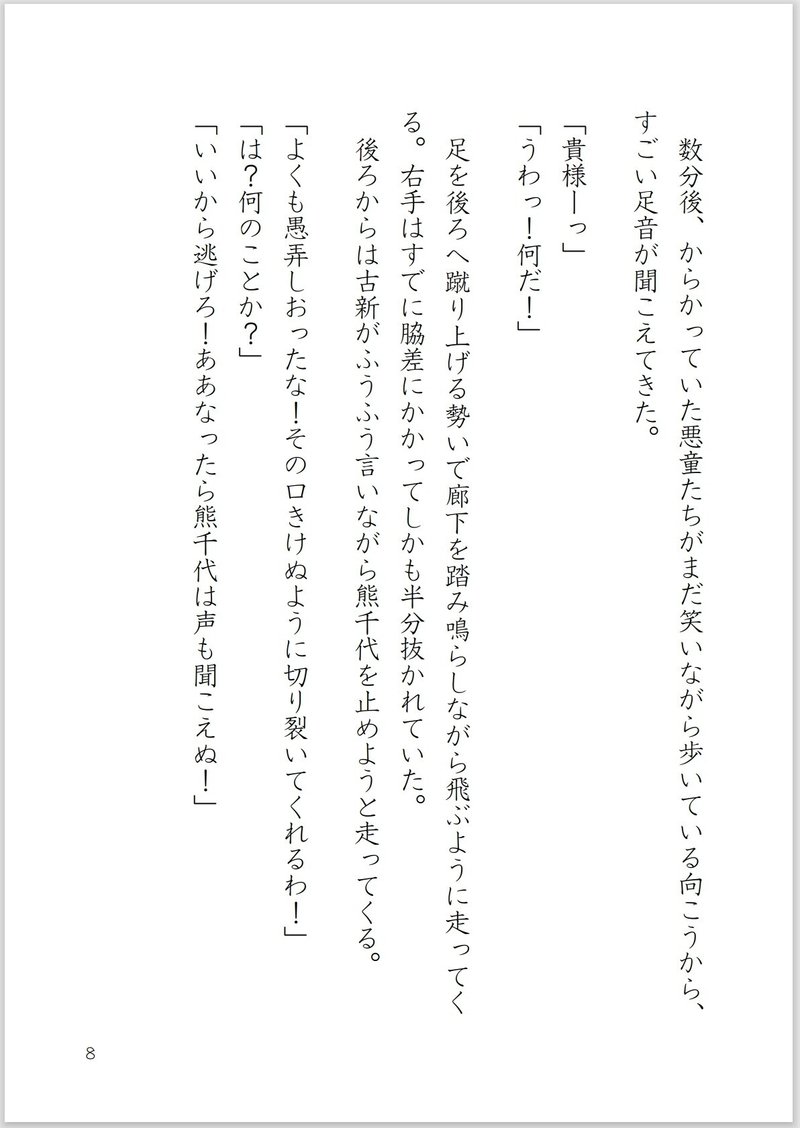 数分後、からかっていた悪童たちがまだ笑いながら歩いている向こうから、
すごい足音が聞こえてきた。
「貴様ーっ」
「うわっ！何だ！」
　足を後ろへ蹴り上げる勢いで廊下を踏み鳴らしながら飛ぶように走ってく
る。右手はすでに脇差にかかってしかも半分抜かれていた。
　後ろからは古新がふうふう言いながら熊千代を止めようと走ってくる。
「よくも愚弄しおったな！その口きけぬように切り裂いてくれるわ！」
「は？何のことか？」
「いいから逃げろ！ああなったら熊千代は声も聞こえぬ！」
8